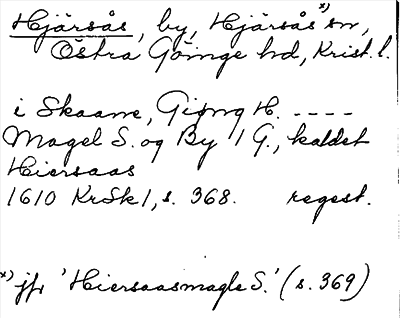 Hjärsås, by, Hjärsås *) sn,
Östra Göinge hd, Krist. l.
i Skaane, Giøng H. ----
Magel S. og By 1 G., kaldet
Hiersaas
1610 KrSk 1, s. 368. regest.
*) jfr 'Hiersaasmagle S.' (s. 369)